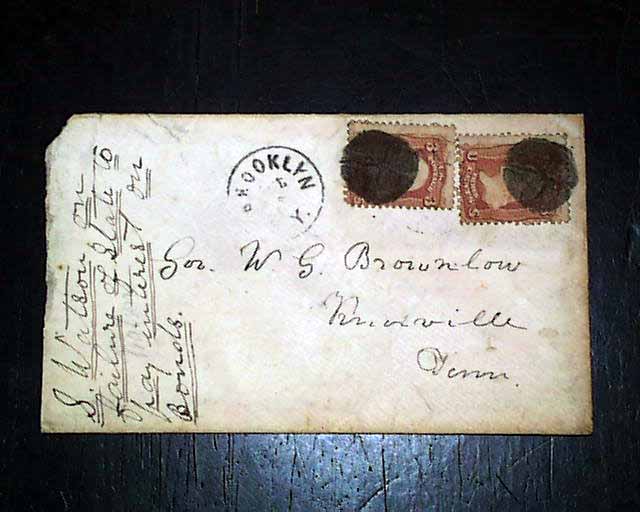 BROOKLYN
Y.
Gov. W. G. Brownlow
Knoxville
Tenn.
S. Watson on
failure of State to
pay interest on
Bonds.